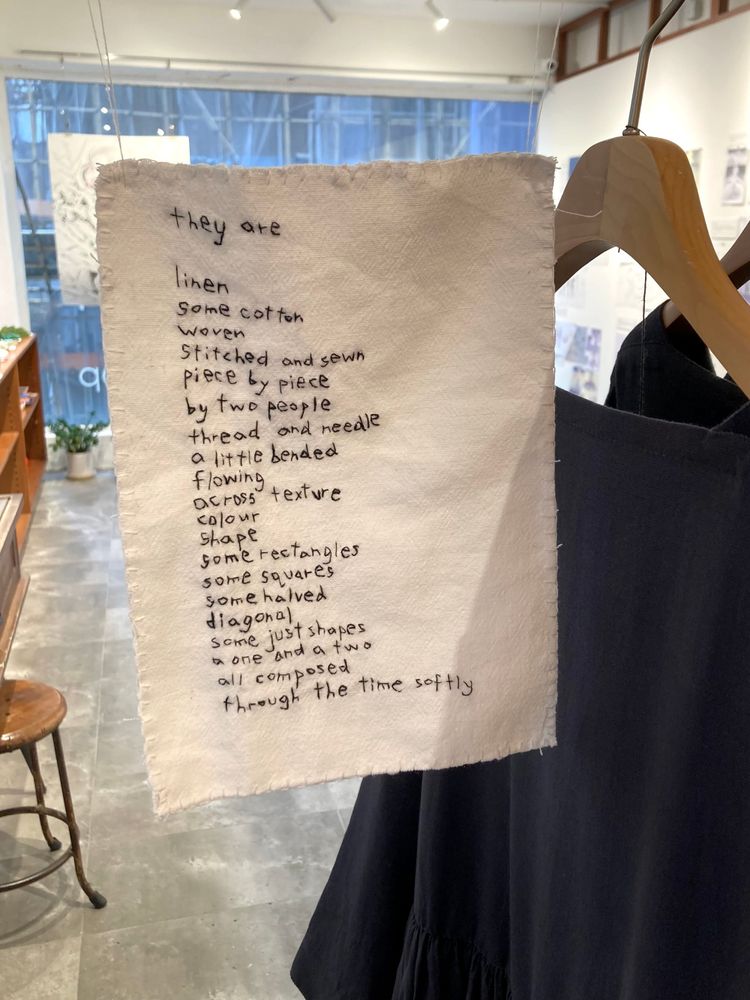 they are
linen
some cotton
woven
stitched and sewn
piece by piece
by two people
thread and needle
a little bended
flowing
across texture
colour
shape
some rectangles
some squares
some halved
diagonal
some just shapes
a one and a two
all composed
through the time softly